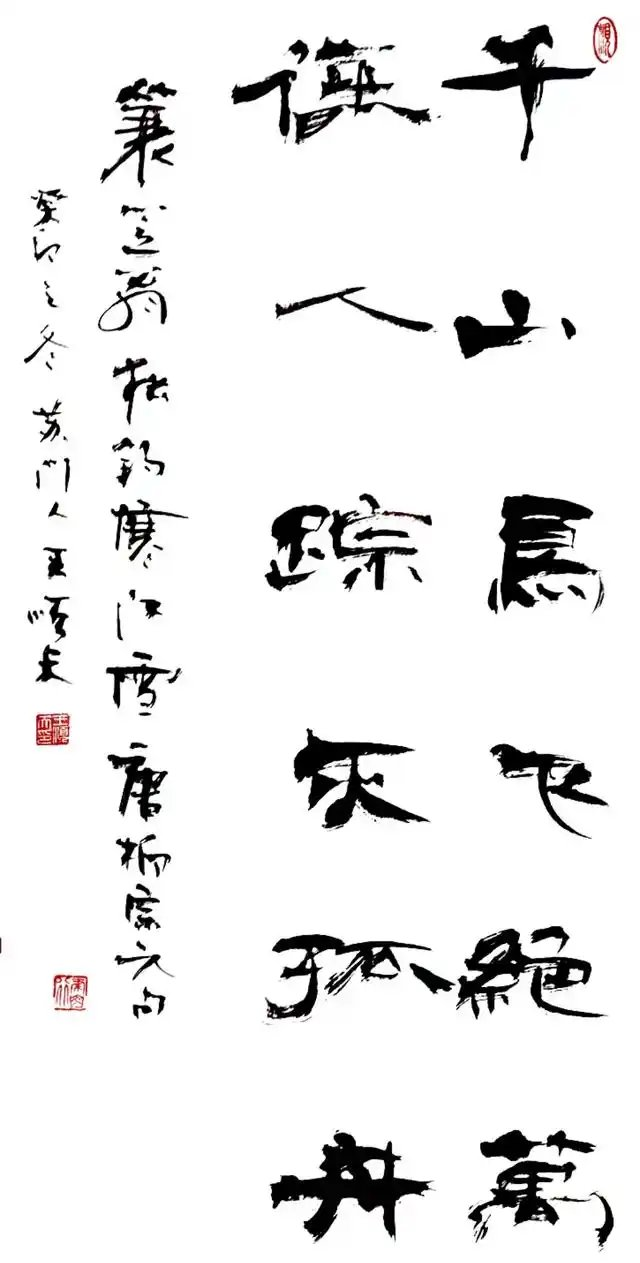 千山鳥飞絕萬
徑人踪灭孤舟
蓑笠翁独釣寒江雪唐柳宗元句
癸卯之冬苏门人王順